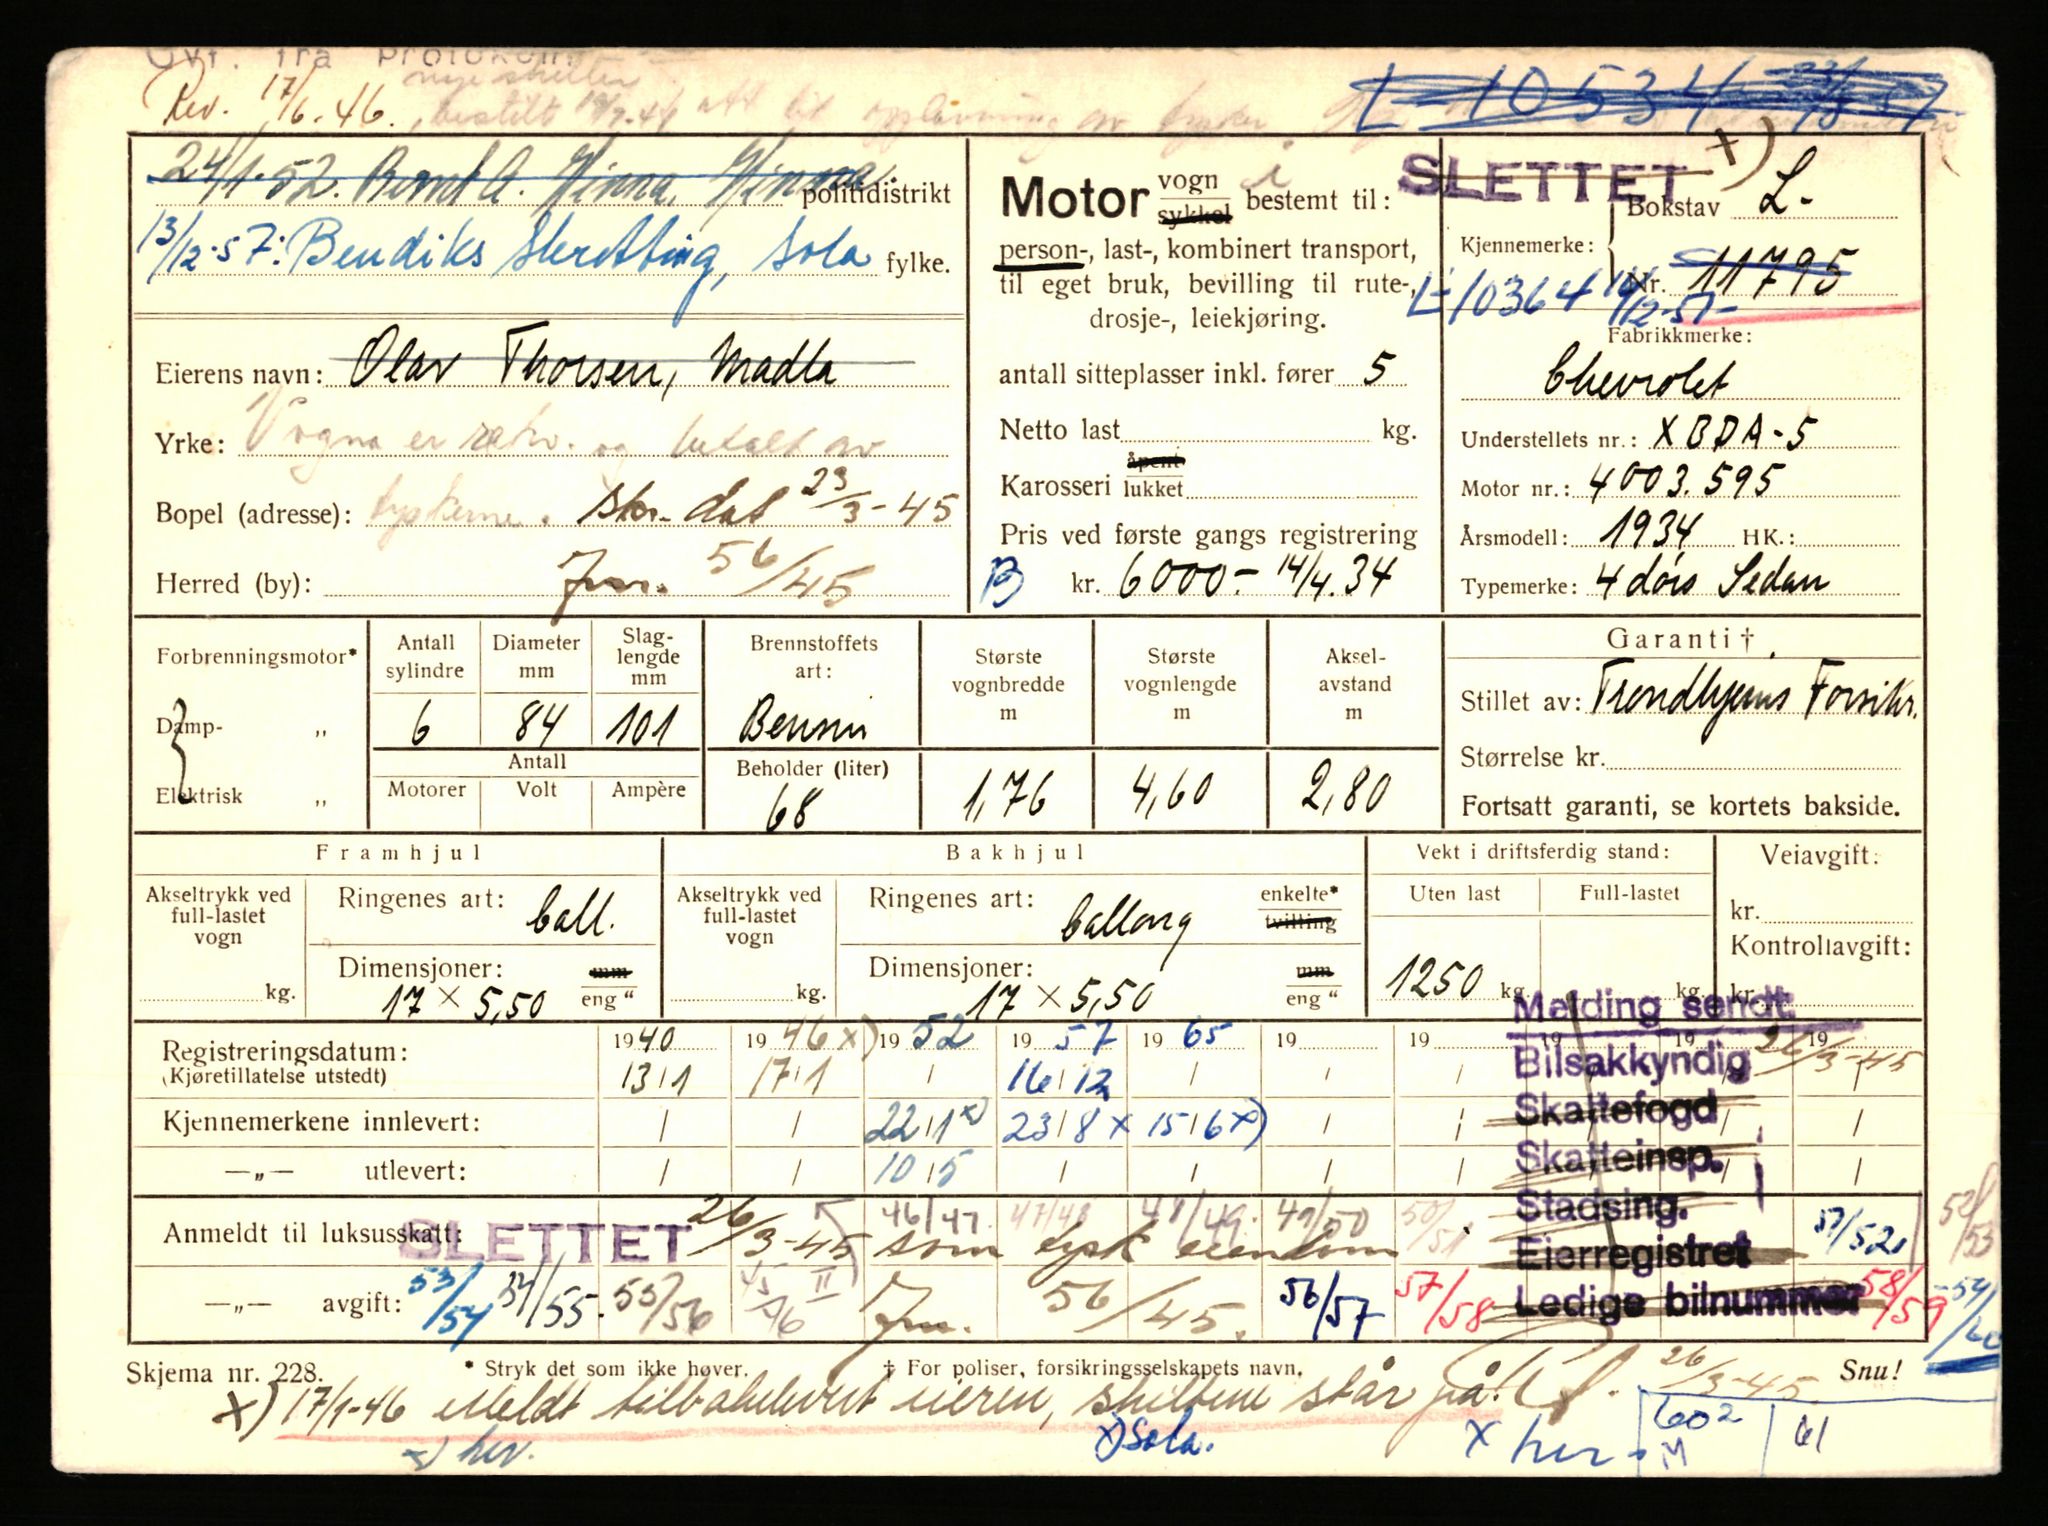 Ovf. fra protokoll
Rev. 17/6-46. nye skilter bestilt
L 10534
24/1-52. Bernt A. Hinna, Hinna. politidistrikt
13/12-57: Bendiks Skretting, Sola fylke.
Eierens navn: Olav Thorsen, Madla
Yrke: Vogna er rekv. og betalt av
Bopel (adresse): tyskerne. skr. dat 23/3-45
Herred (by): Jnr. 56/45
Motor vogn sykkel bestemt til:
person-, last-, kombinert transport,
til eget bruk, bevilling til rute-,
drosje-, leiekjøring.
antall sitteplasser inkl. fører 5
Netto last kg.
Karosseri åpent lukket
Pris ved første gangs registrering
B kr. 6000.- 14/4.34
SLETTET x)
Bokstav L-
Kjennemerke:
Nr. 11795
L-10364 14/12-57-
Fabrikkmerke:
Chevrolet
Understellets nr.: XBDA-5
Motor nr.: 4003.595
Årsmodell: 1934 HK.:
Typemerke: 4 dørs Sedan
Forbrenningsmotor*
Damp- „
Elektrisk „
Antall sylindre 6
Diameter mm 84
Slaglengde mm 101
Antall
Motorer Volt Ampère
Brennstoffets art: Bensin
Beholder (liter) 68
Største vognbredde m 1,76
Største vognlengde m 4,60
Akselavstand m 2,80
Garanti †
Stillet av: Trondhjems Forsikr.
Størrelse kr.
Fortsatt garanti, se kortets bakside.
Framhjul
Akseltrykk ved full-lastet vogn
kg.
Ringenes art: ball.
Dimensjoner: mm
17 x 5,50 eng "
Bakhjul
Akseltrykk ved full-lastet vogn
kg.
Ringenes art: ballong enkelte* tvilling
Dimensjoner: mm
17 x 5,50 eng "
Vekt i driftsferdig stand:
Uten last Full-lastet
1250 kg. kg.
Veiavgift:
kr.
Kontrollavgift:
kr.
Registreringsdatum: 1940 1946 x) 1952 1957 1965 19 19 19 19 19
(Kjøretillatelse utstedt) 13/1 17/1 16/12
Kjennemerkene innlevert: 22/1 x) 23/8 x 15/6 x)
—„— utlevert: 10/5
Melding sendt 26/3-45
Bilsakkyndig
Skattefogd
Skatteinsp.
Stadsing.
Eierregistret
Ledige bilnummer
Anmeldt til luksusskatt: SLETTET 26/3-45 som tysk eiendom
46/47. 47/48 48/49. 49/50 50/51 51/52 52/53
—„— avgift: 53/54 54/55. 55/56 45/46 II Jnr. 56/45. 56/57 57/58 58/59 59/60
Skjema nr. 228. * Stryk det som ikke høver. † For poliser, forsikringsselskapets navn. 26/3-45 Snu!
x) 17/1-46 Meldt tilbakelevert eieren, skiltene står på.
x) her. x) Sola. x her. 602 M 61